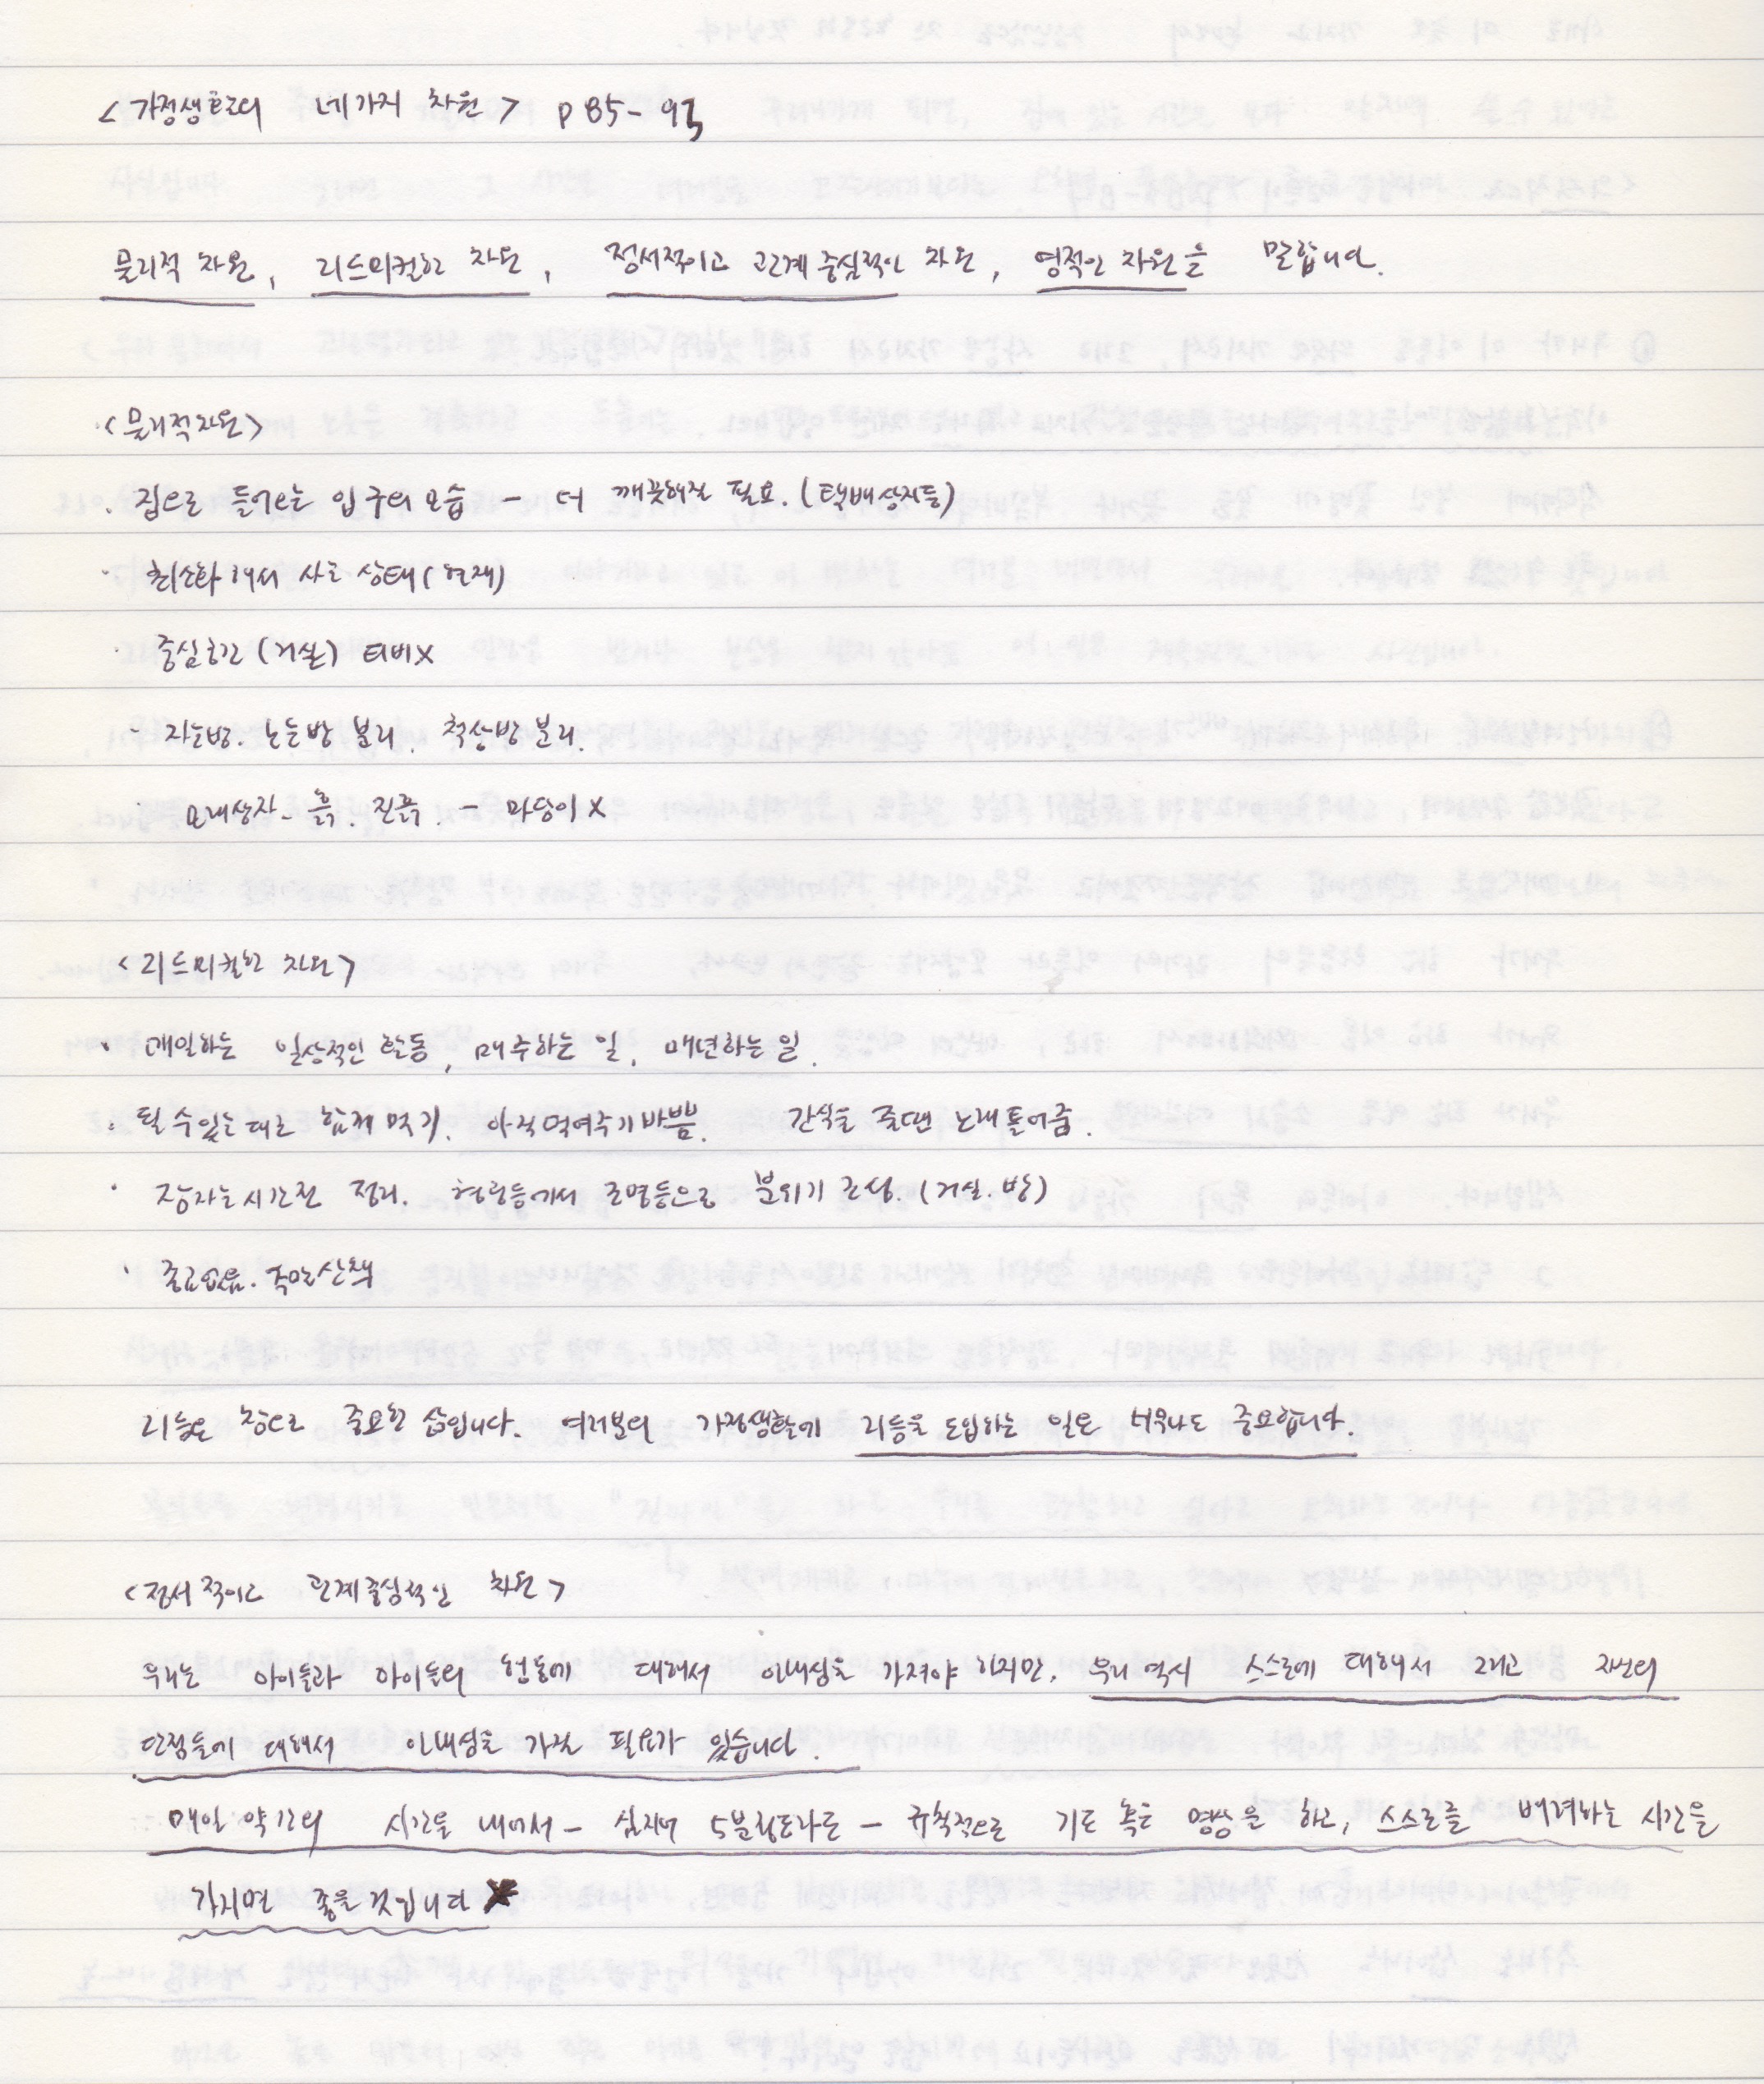 <가정생활의 네가지 차원> p 85-93
물리적 차원, 리드미컬한 차원, 정서적이고 관계중심적인 차원, 영적인 차원을 말합니다.
<물리적차원>
· 집으로 들어오는 입구의 모습 - 더 깨끗해질 필요. (택배상자들)
· 최소화해서 사는 상태(현재)
· 중심허간 (거실) 티비X
· 자는방. 노는방 분리. 책상방 분리.
· 모래상자 - 흙. 진흙. - 마당이 X
<리드미컬한 차원>
· 매일하는 일상적인 활동, 매주하는 일, 매년하는 일.
· 될 수 있는 대로 함께 먹기. 아직 먹여주기 바쁨. 간식을 줄땐 노래 틀어줌.
· 잠자는시간전 정리. 형광등에서 조명등으로 분위기 조성. (거실. 방)
· 종교없음. 주말산책
리듬은 참으로 중요한 삶입니다. 여러분의 가정생활에 리듬을 도입하는 일은 너무나도 중요합니다.
<정서적이고 관계중심적인 차원>
우리는 아이들과 아이들의 행동에 대해서 인내심을 가져야 하지만, 우리 역시 스스로에 대해서 그리고 자신의
단점들에 대해서 인내심을 가질 필요가 있습니다.
매일 약간의 시간을 내어서 - 심지어 5분정도라도 - 규칙적으로 기도 혹은 명상을 하고, 스스로를 배려하는 시간을
가지면 좋을것입니다